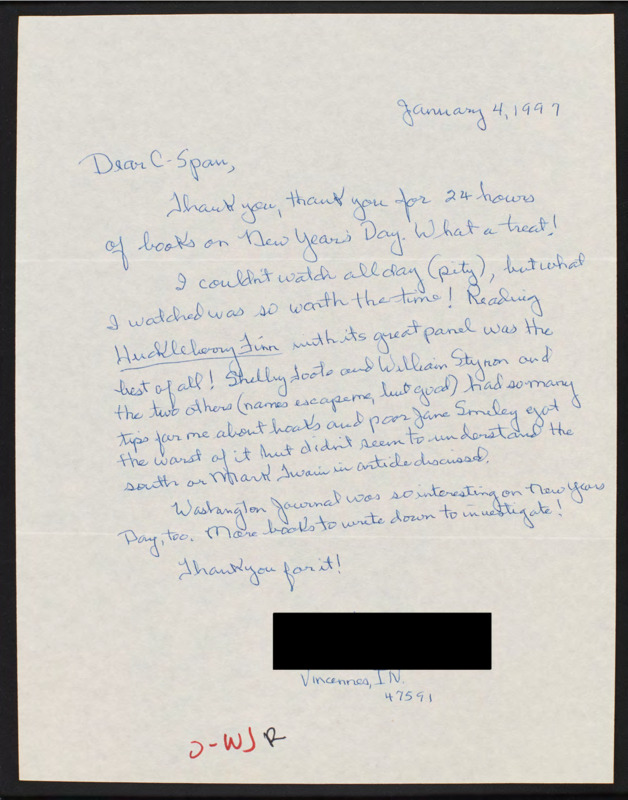 January 4, 1997
Dear C-Span,
Thank you, thank you for 24 hours
of books on New Year's Day. What a treat!
I couldn't watch all day (pity), but what
I watched was so worth the time! Reading
Huckleberry Finn with its great panel was the
best of all! Shelby Foote and William Styron and
the two others (names escape me, but good) had so many
tips for me about books and poor Jane Smiley got
the worst of it but didn't seem to understand the
south or Mark Twain in article discussed.
Washington Journal was so interesting on New Years
Day, too. More books to write down to investigate!
Thank you for it!
Vincennes, IN.
47591
J-WJ R